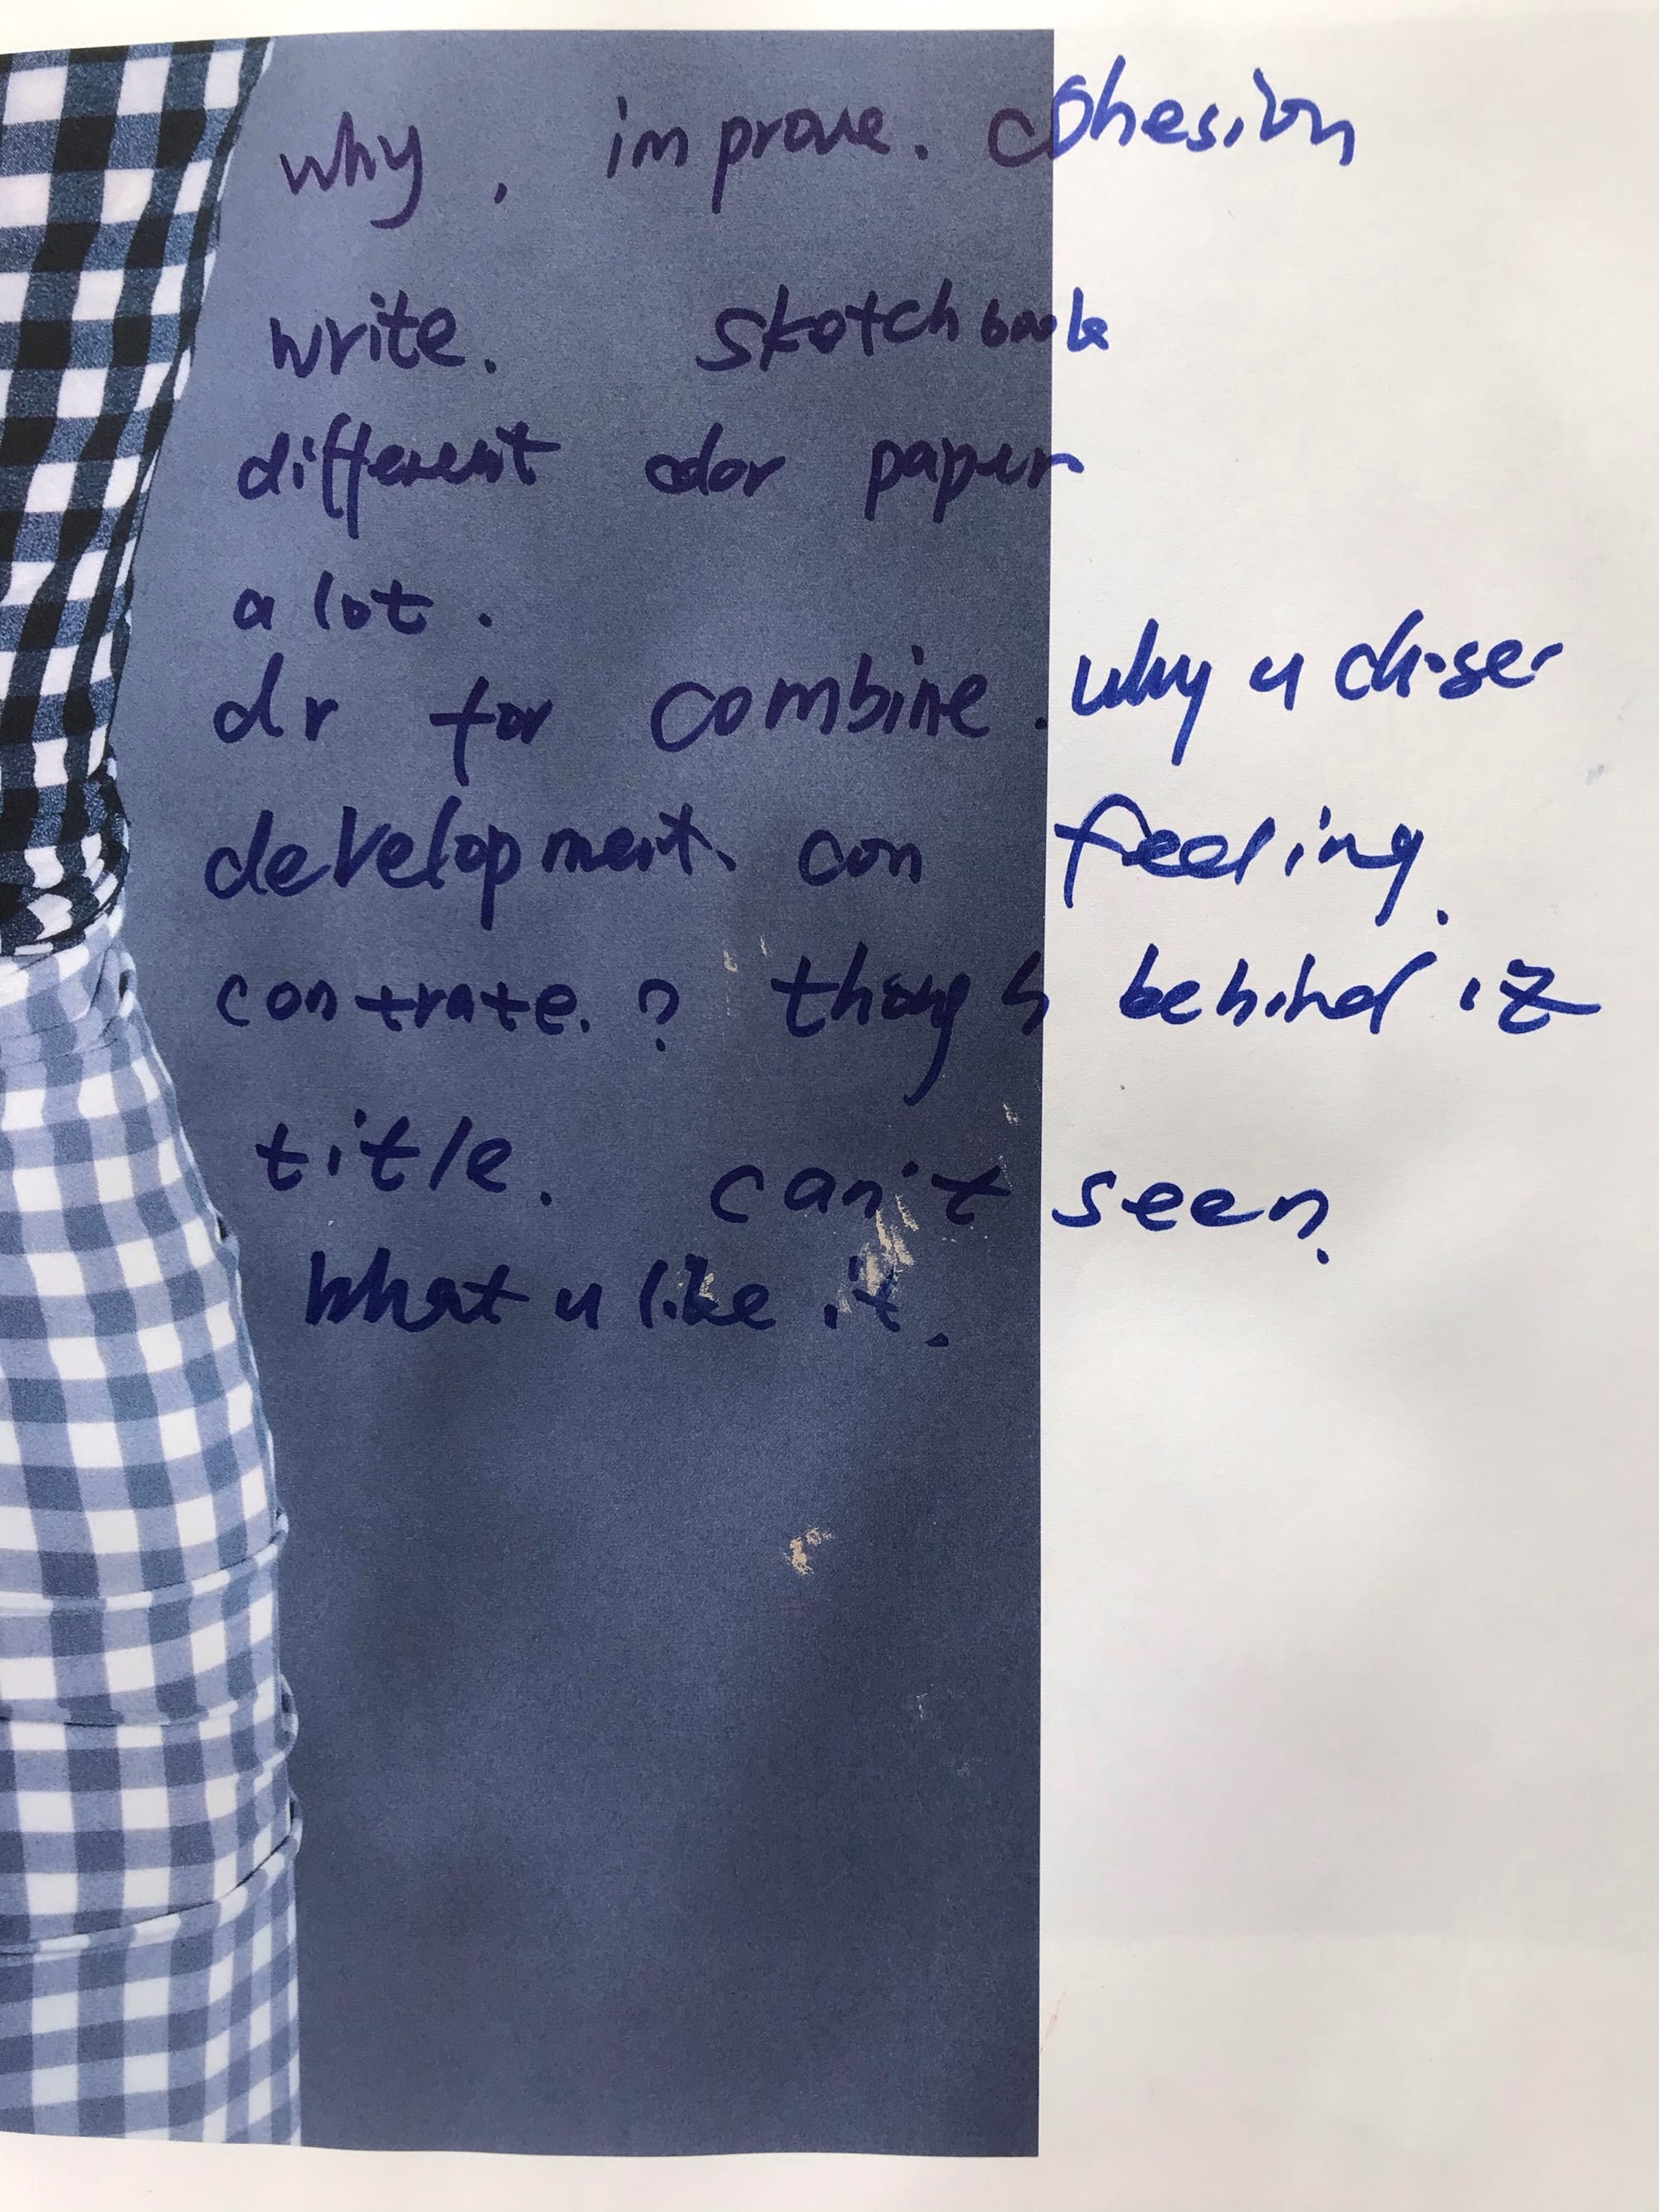 why, improve. cohesion
write. sketchbook
different color paper
a lot.
dr for combine. why u choser
development. con feeling.
contrate. ? though behind it
title. can't seen.
what u like it.